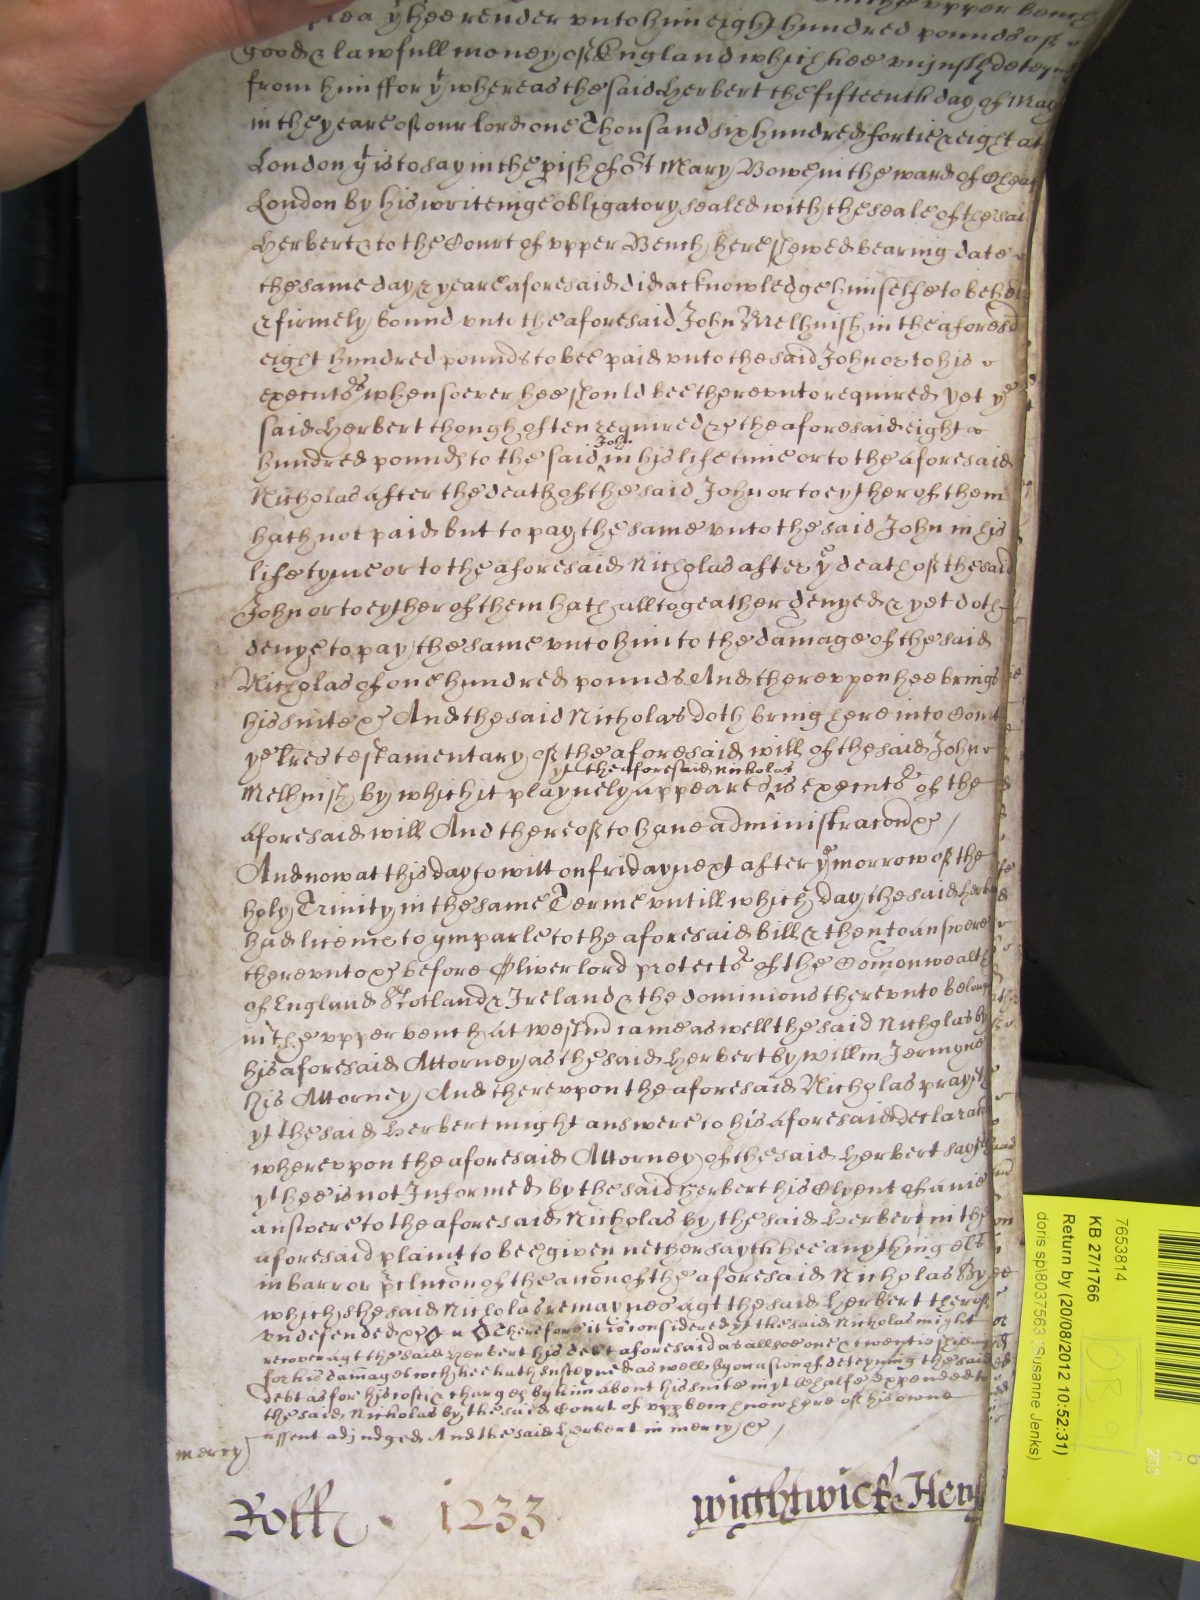 plea yt hee render vnto him eight hundred pounds of
good & lawfull money of England which hee vniustly deteyn
from him ffor yt whereas the said Herbert the fifteenth day of May
in the yeare of our lord one Thousand six hundred fortie & eight at
London yt is to say in the pish of St Mary Bowe in the ward of Cheap
London by his writeinge obligatory sealed with the seale of the said
Herbert & to the Court of vpper Bench here shewed bearing date
the same day & yeare aforesaid did acknowledge himselfe to be held
& firmely bound vnto the aforesaid John Melhuish in the aforesd
eight hundred pounds to bee paid vnto the said John or to his
executrs whensoever hee should bee therevnto required yet ye
said Herbert though often required &c the aforesaid eight
hundred pounds to the said John in his life time or to the aforesaid
Nicholas after the death of the said John or to eyther of them
hath not paid but to pay the same vnto the said John in his
life tyme or to the aforesaid Nicholas after ye death of the said
John or to eyther of them hath alltogeather denyed & yet doth
denye to pay the same vnto him to the damage of the said
Nicholas of one hundred pounds And therevpon hee brings
his suite &c And the said Nicholas doth bring here into Court
ye lres testamentary of the aforesaid will of the said John
yt the aforesaid Nicholas
Melhuish by which it playnely appeares is executr of the
aforesaid will And thereof to haue administracon &c /
And now at this day to witt on friday next after ye morrow of the
holy Trinity in the same Terme vntill which day the said Herb
had licence to ymparle to the aforesaid bill & then to answere
therevnto &c before Oliver lord protectr of the Comonwealth
of England Scotland & Ireland & the dominions therevnto belong
in the vpper bench at Westmr came as well the said Nichglas by
his aforesaid Attorney as the said Herbert by Willm Jermyne
his Attorney And therevpon the aforesaid Nicholas prayeth
yt the said Herbert might answere to his aforesaid declarac
wherevpon the aforesaid Attorney of the said Herbert sayeth
yt hee is not Informed by the said Herbert his Clyent of anie
answere to the aforesaid Nicholas by the said Herbert in the
aforesaid plaint to bee given nether sayth hee any thing els
in barr or pclusion of the accon of the aforesaid Nicholas By
which the said Nicholas remaynes agt the said Herbert therof
vndefended &c Therefore it is considered yt the said Nicholas might
recover agt the said Herbert his debt aforesaid as allsoe one & twentie shillings
for his damages wch hee hath susteyned as well by occasion of deteyning the said
debt as for his costs & charges by him about his suite in yt behalfe expended to
the said Nicholas by the said Court of vpp bench now here of his owne
assent adjudged And the said Herbert in mercy &c /
mercy
Roll 1233
Wightwick Hen
7653814
KB 27/1766
Return by (20/08/2012 10:52:31)
doris sp\8037563 (Susanne Jenks)